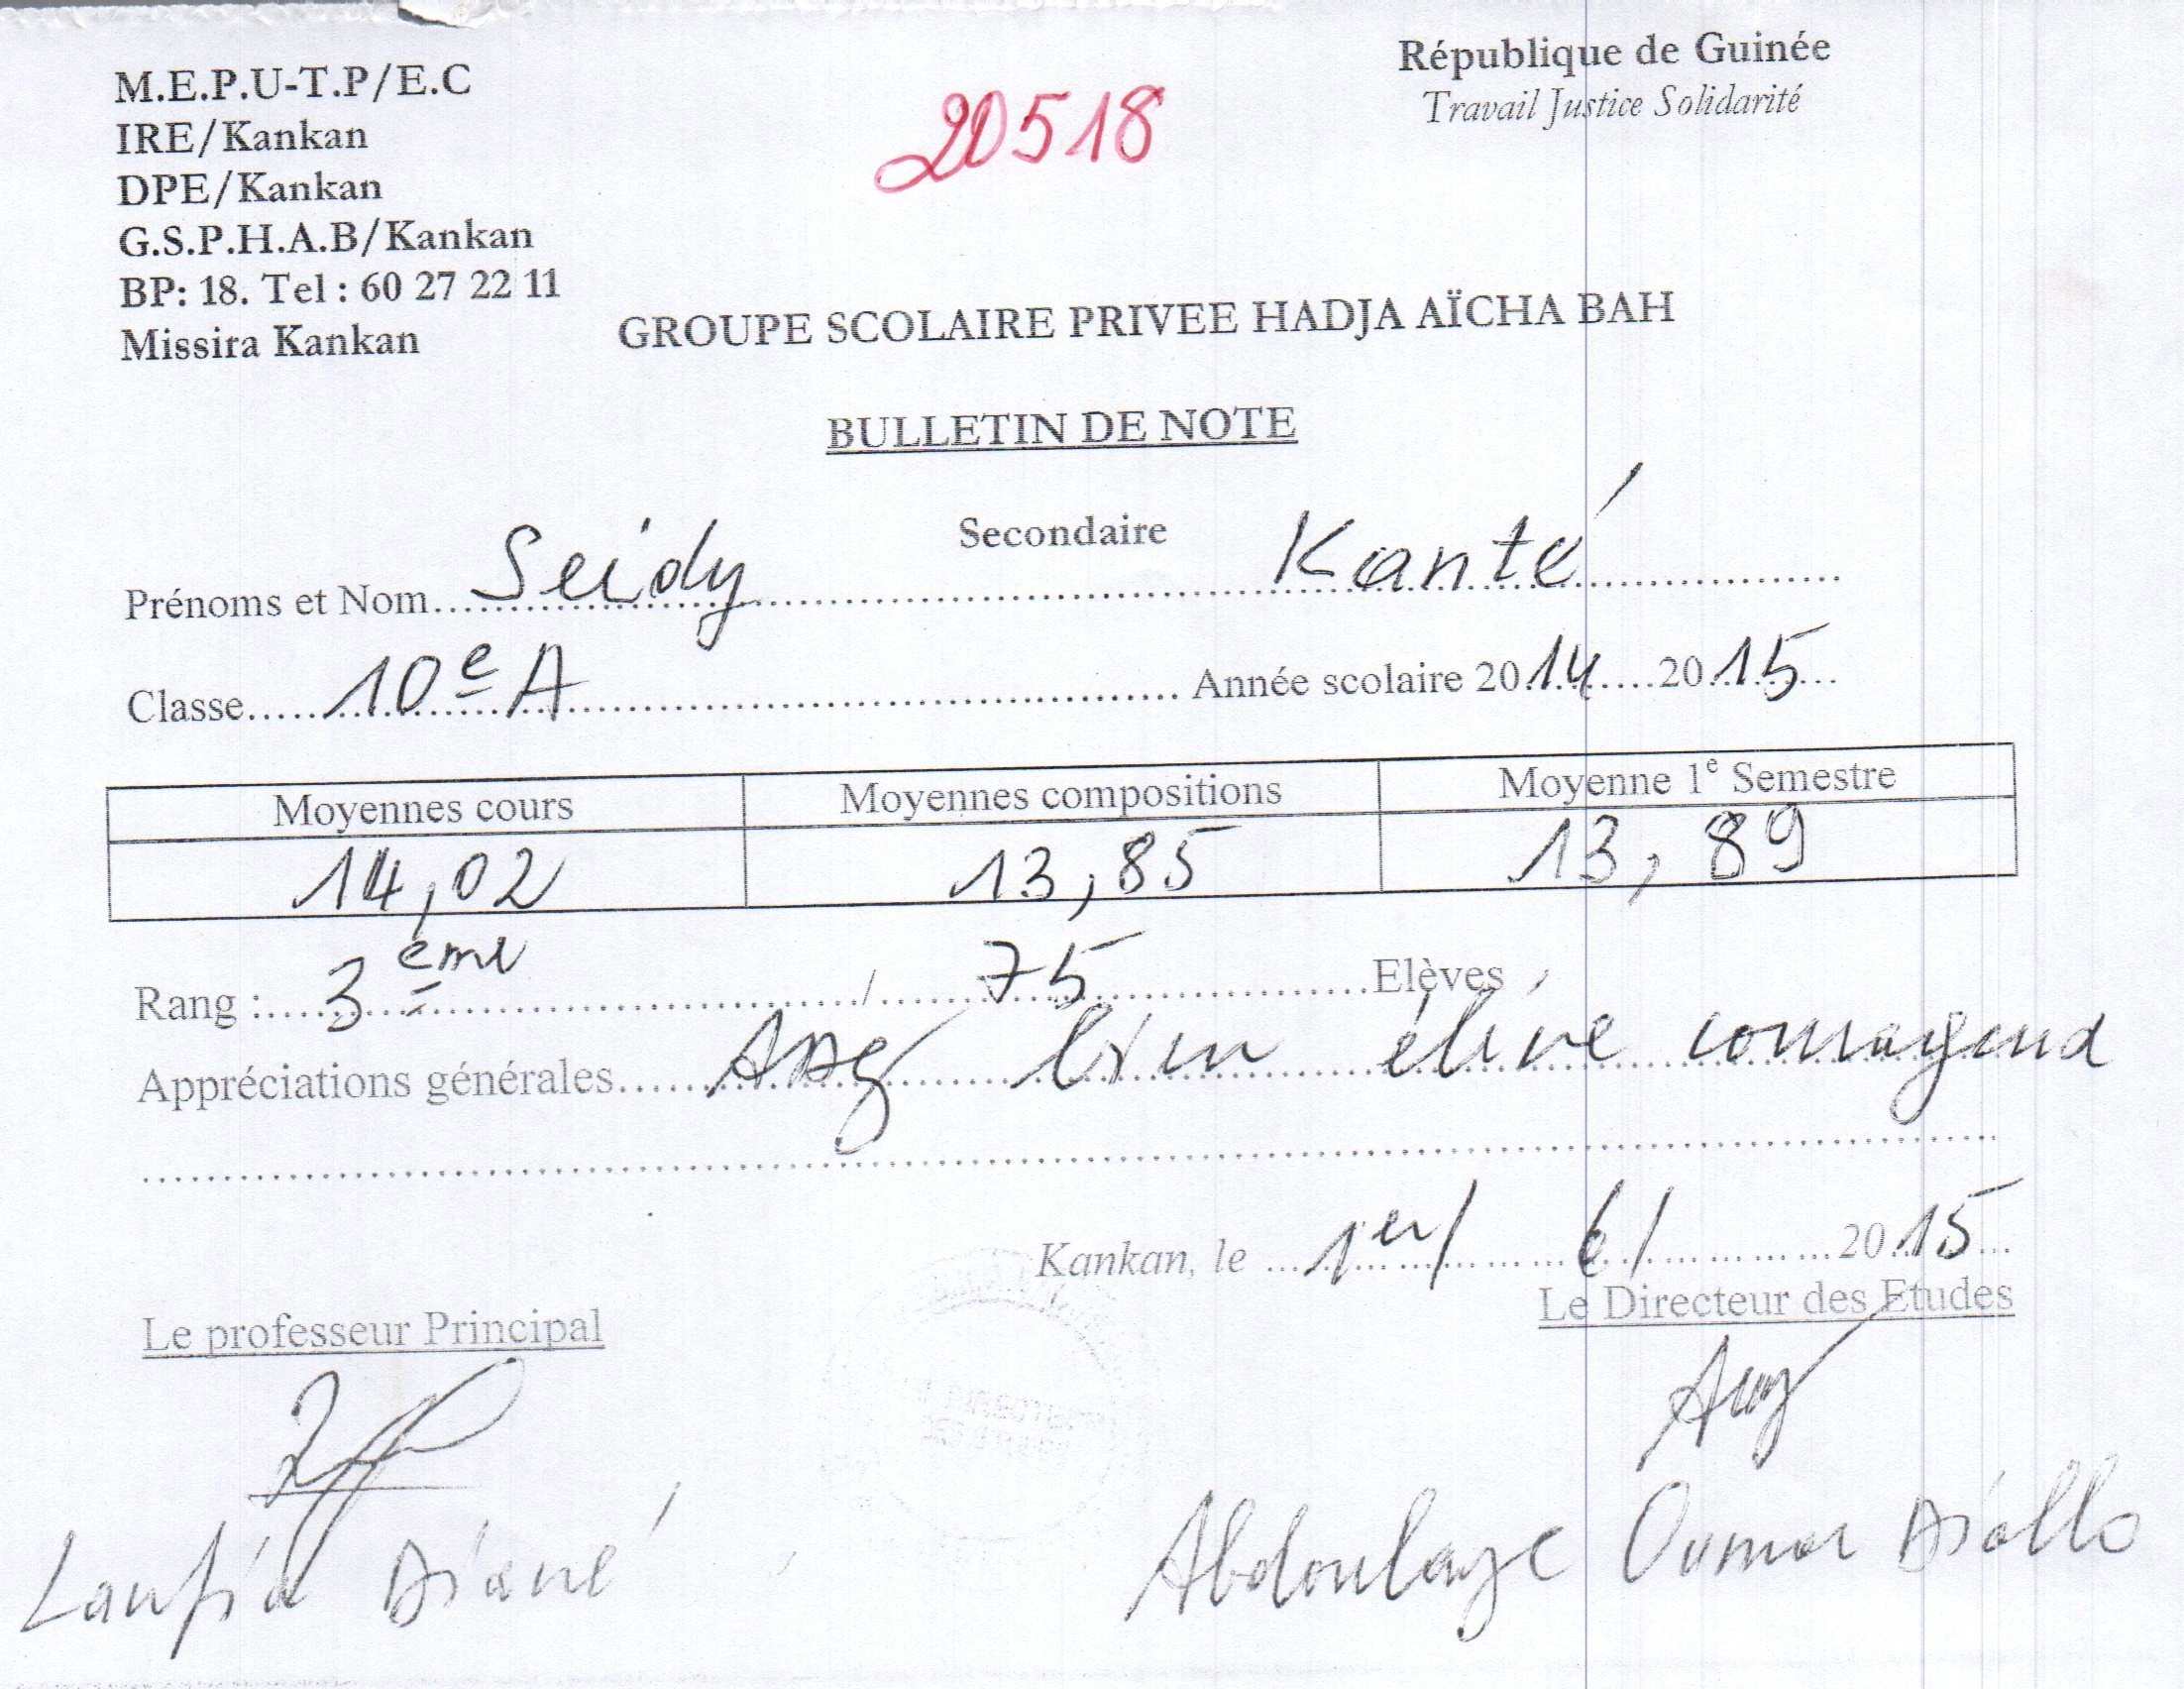 M.E.P.U-T.P/E.C
IRE/Kankan
DPE/Kankan
G.S.P.H.A.B/Kankan
BP: 18. Tel : 60 27 22 11
Missira Kankan
20518
République de Guinée
Travail Justice Solidarité
GROUPE SCOLAIRE PRIVEE HADJA AÏCHA BAH
BULLETIN DE NOTE
Secondaire
Prénoms et Nom Seidy Kanté
Classe 10e A Année scolaire 2014 2015
Moyennes cours Moyennes compositions Moyenne 1e Semestre
14,02 13,85 13,89
Rang : 3ème / 75 Elèves
Appréciations générales bien élève
Kankan, le 1er/ 6/ 2015
Le professeur Principal Le Directeur des Etudes
Diané Abdoulaye Oumar Diallo